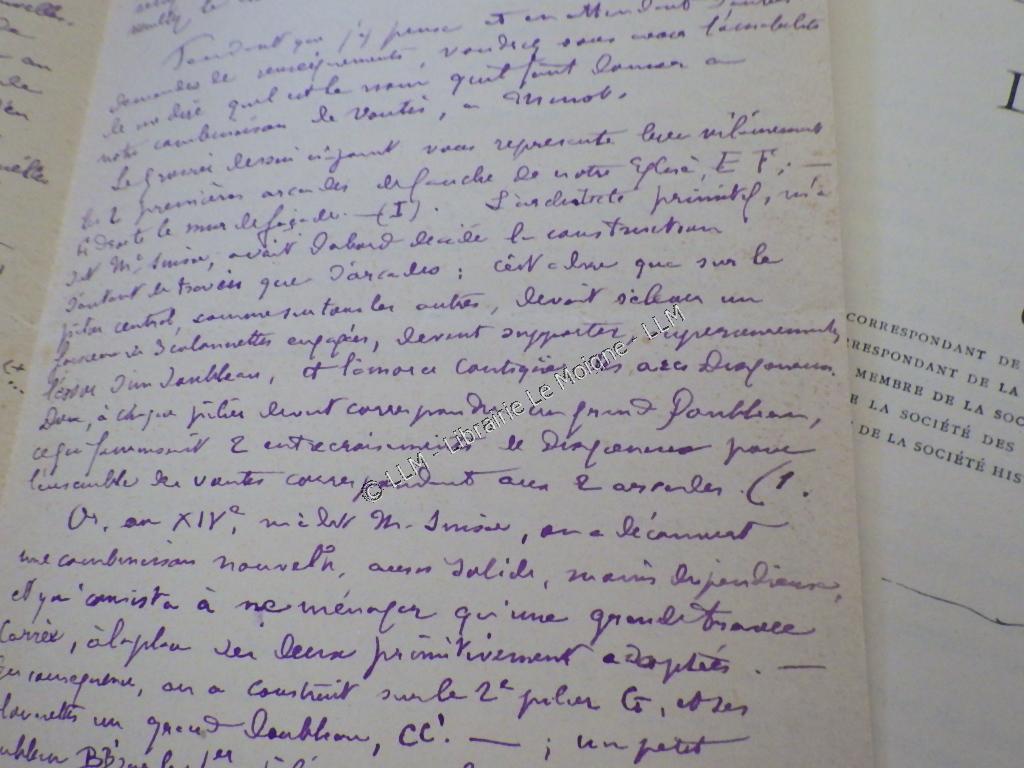 Pendant que j'y pense et en attendant d'autres
demandes de renseignements, voudriez vous avoir l'amabilité
de me dire quel est le nom qu'il faut donner à
notre combinaison de voutes, à
Le grossier dessin ci-joint vous représente bien vilainement
les 2 premières arcades de gauche de notre Eglise, E F; —
à droite le mur de façade. — (I). L'architecte primitif, m'a
dit Mr Suisse, avait d'abord décidé la construction
d'autant de travées que d'arcades; c'est à dire que sur le
pilier central, comme sur tous les autres, devait s'élever un
faisceau de 3 colonnettes engagées, devant supporter, supérieurement,
d'un doubleau, et l'amorce des arcs diagonaux.
Donc, à chaque pilier devait correspondre un grand Doubleau,
ce qui fournissait 2 entrecroisements de diagonaux pour
l'ensemble des voutes correspondant aux 2 arcades. (1.
Or, au XIVe, m'a dit Mr Suisse, on a découvert
une combinaison nouvelle, aussi solide, moins dispendieuse,
et qui consista à ne ménager qu'une grande travée
carrée, à la place des deux primitivement adoptées. —
conséquence, on a construit sur le 2e pilier G, et ses
un grand doubleau, CC'. — ; un petit
BB' sur le 1er
L
CORRESPONDANT DE
RRESPONDANT DE LA
MEMBRE DE LA SOC
E LA SOCIÉTÉ DES
DE LA SOCIÉTÉ HIS
© LLM - Librairie Le Moigne - LLM